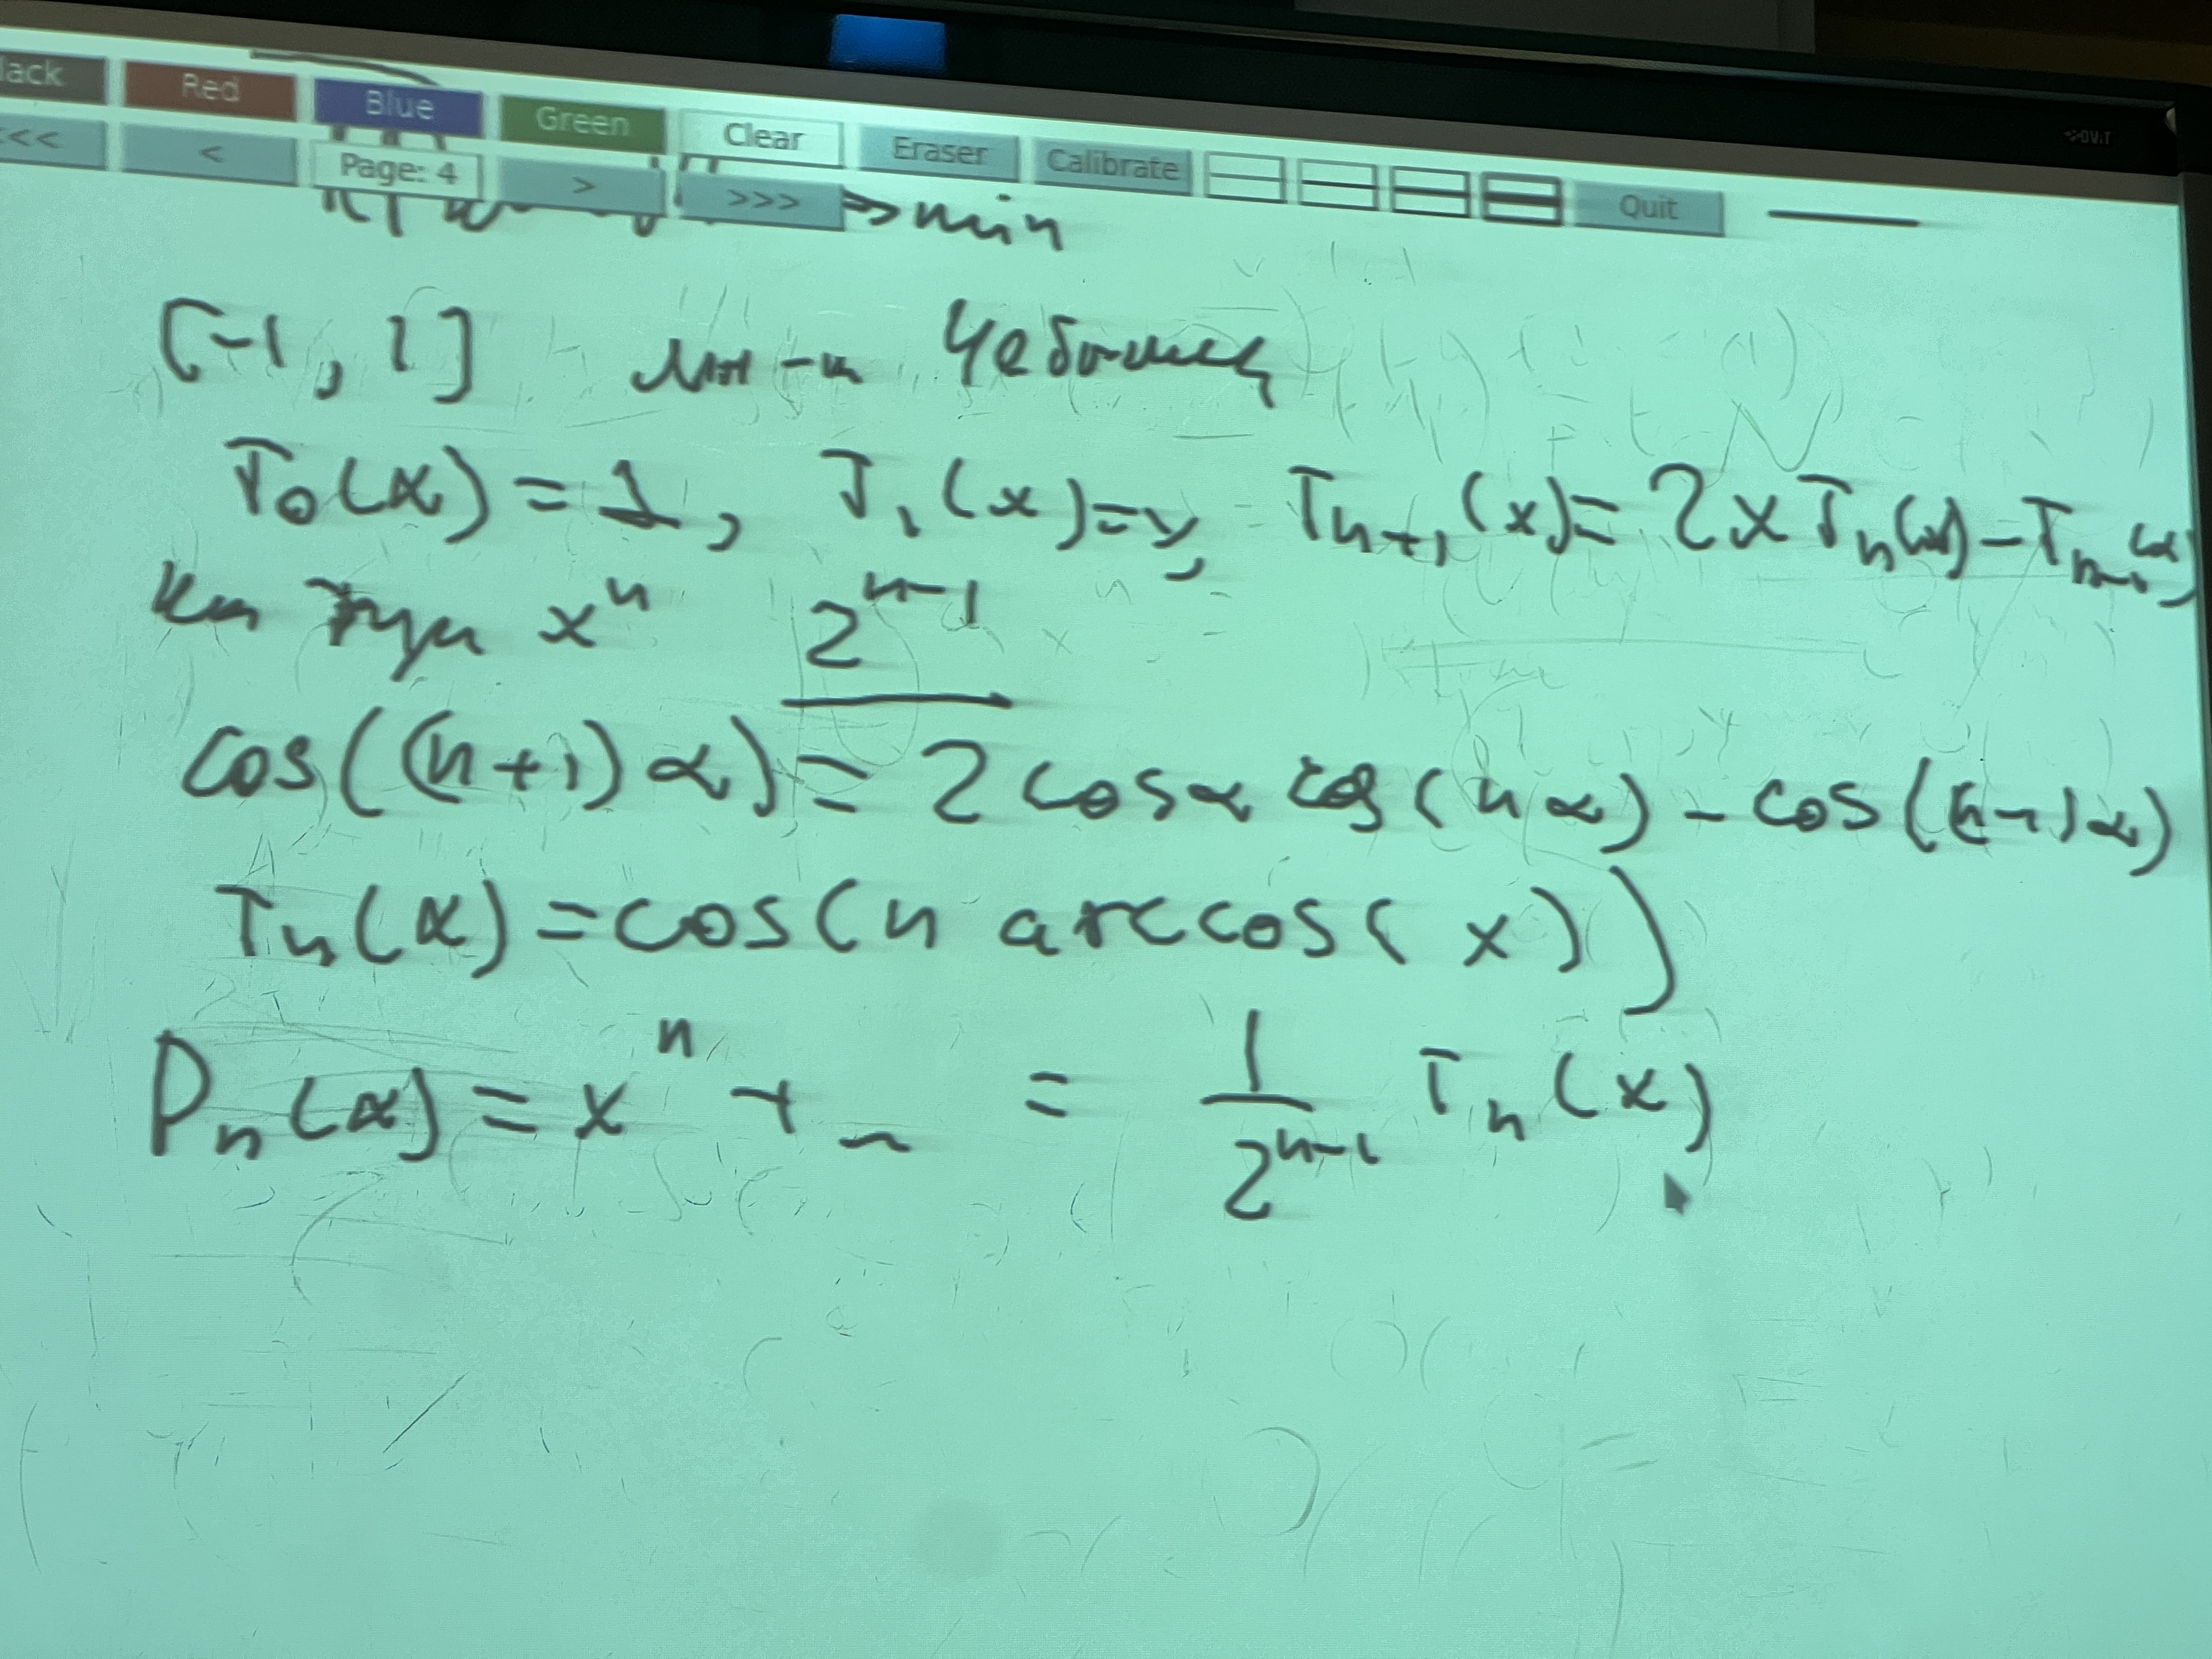 Red Blue Green Clear Eraser Calibrate Quit
<<< < Page: 4 > >>>
→ min
[-1, 1] мн-н Чебышев
T₀(x) = 1, T₁(x) = x, Tₙ₊₁(x) = 2xTₙ(x) - Tₙ₋₁(x)
при xⁿ 2ⁿ⁻¹
cos((n+1)α) = 2 cosα cos(nα) - cos((n-1)α)
Tₙ(x) = cos(n arccos(x))
Pₙ(x) = xⁿ + ... = 1/2ⁿ⁻¹ Tₙ(x)